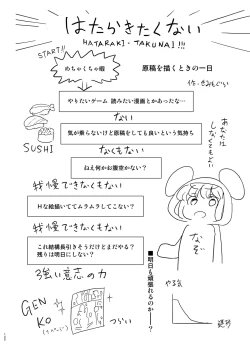 はたらきたくない
HATARAKI・TAKUNAI!!!
START!!
めちゃくちゃ暇
原稿を描くときの一日
やりたいゲーム 読みたい漫画とかあったな…
ない
気が乗らないけど原稿をしても良いという気持ち
なくもない
SUSHI
ねえ何かお腹空かない?
我慢できなくもない
Hな絵描いててムラムラしてこない?
我慢できなくもない
これ結構長引きそうだけどまだやる?
残りは明日にしない?
強い意志の力
GEN
KO
つらい
■明日も頑張れるのか――?
あなたは
しなくもよい
なぞ
やる気
疲労